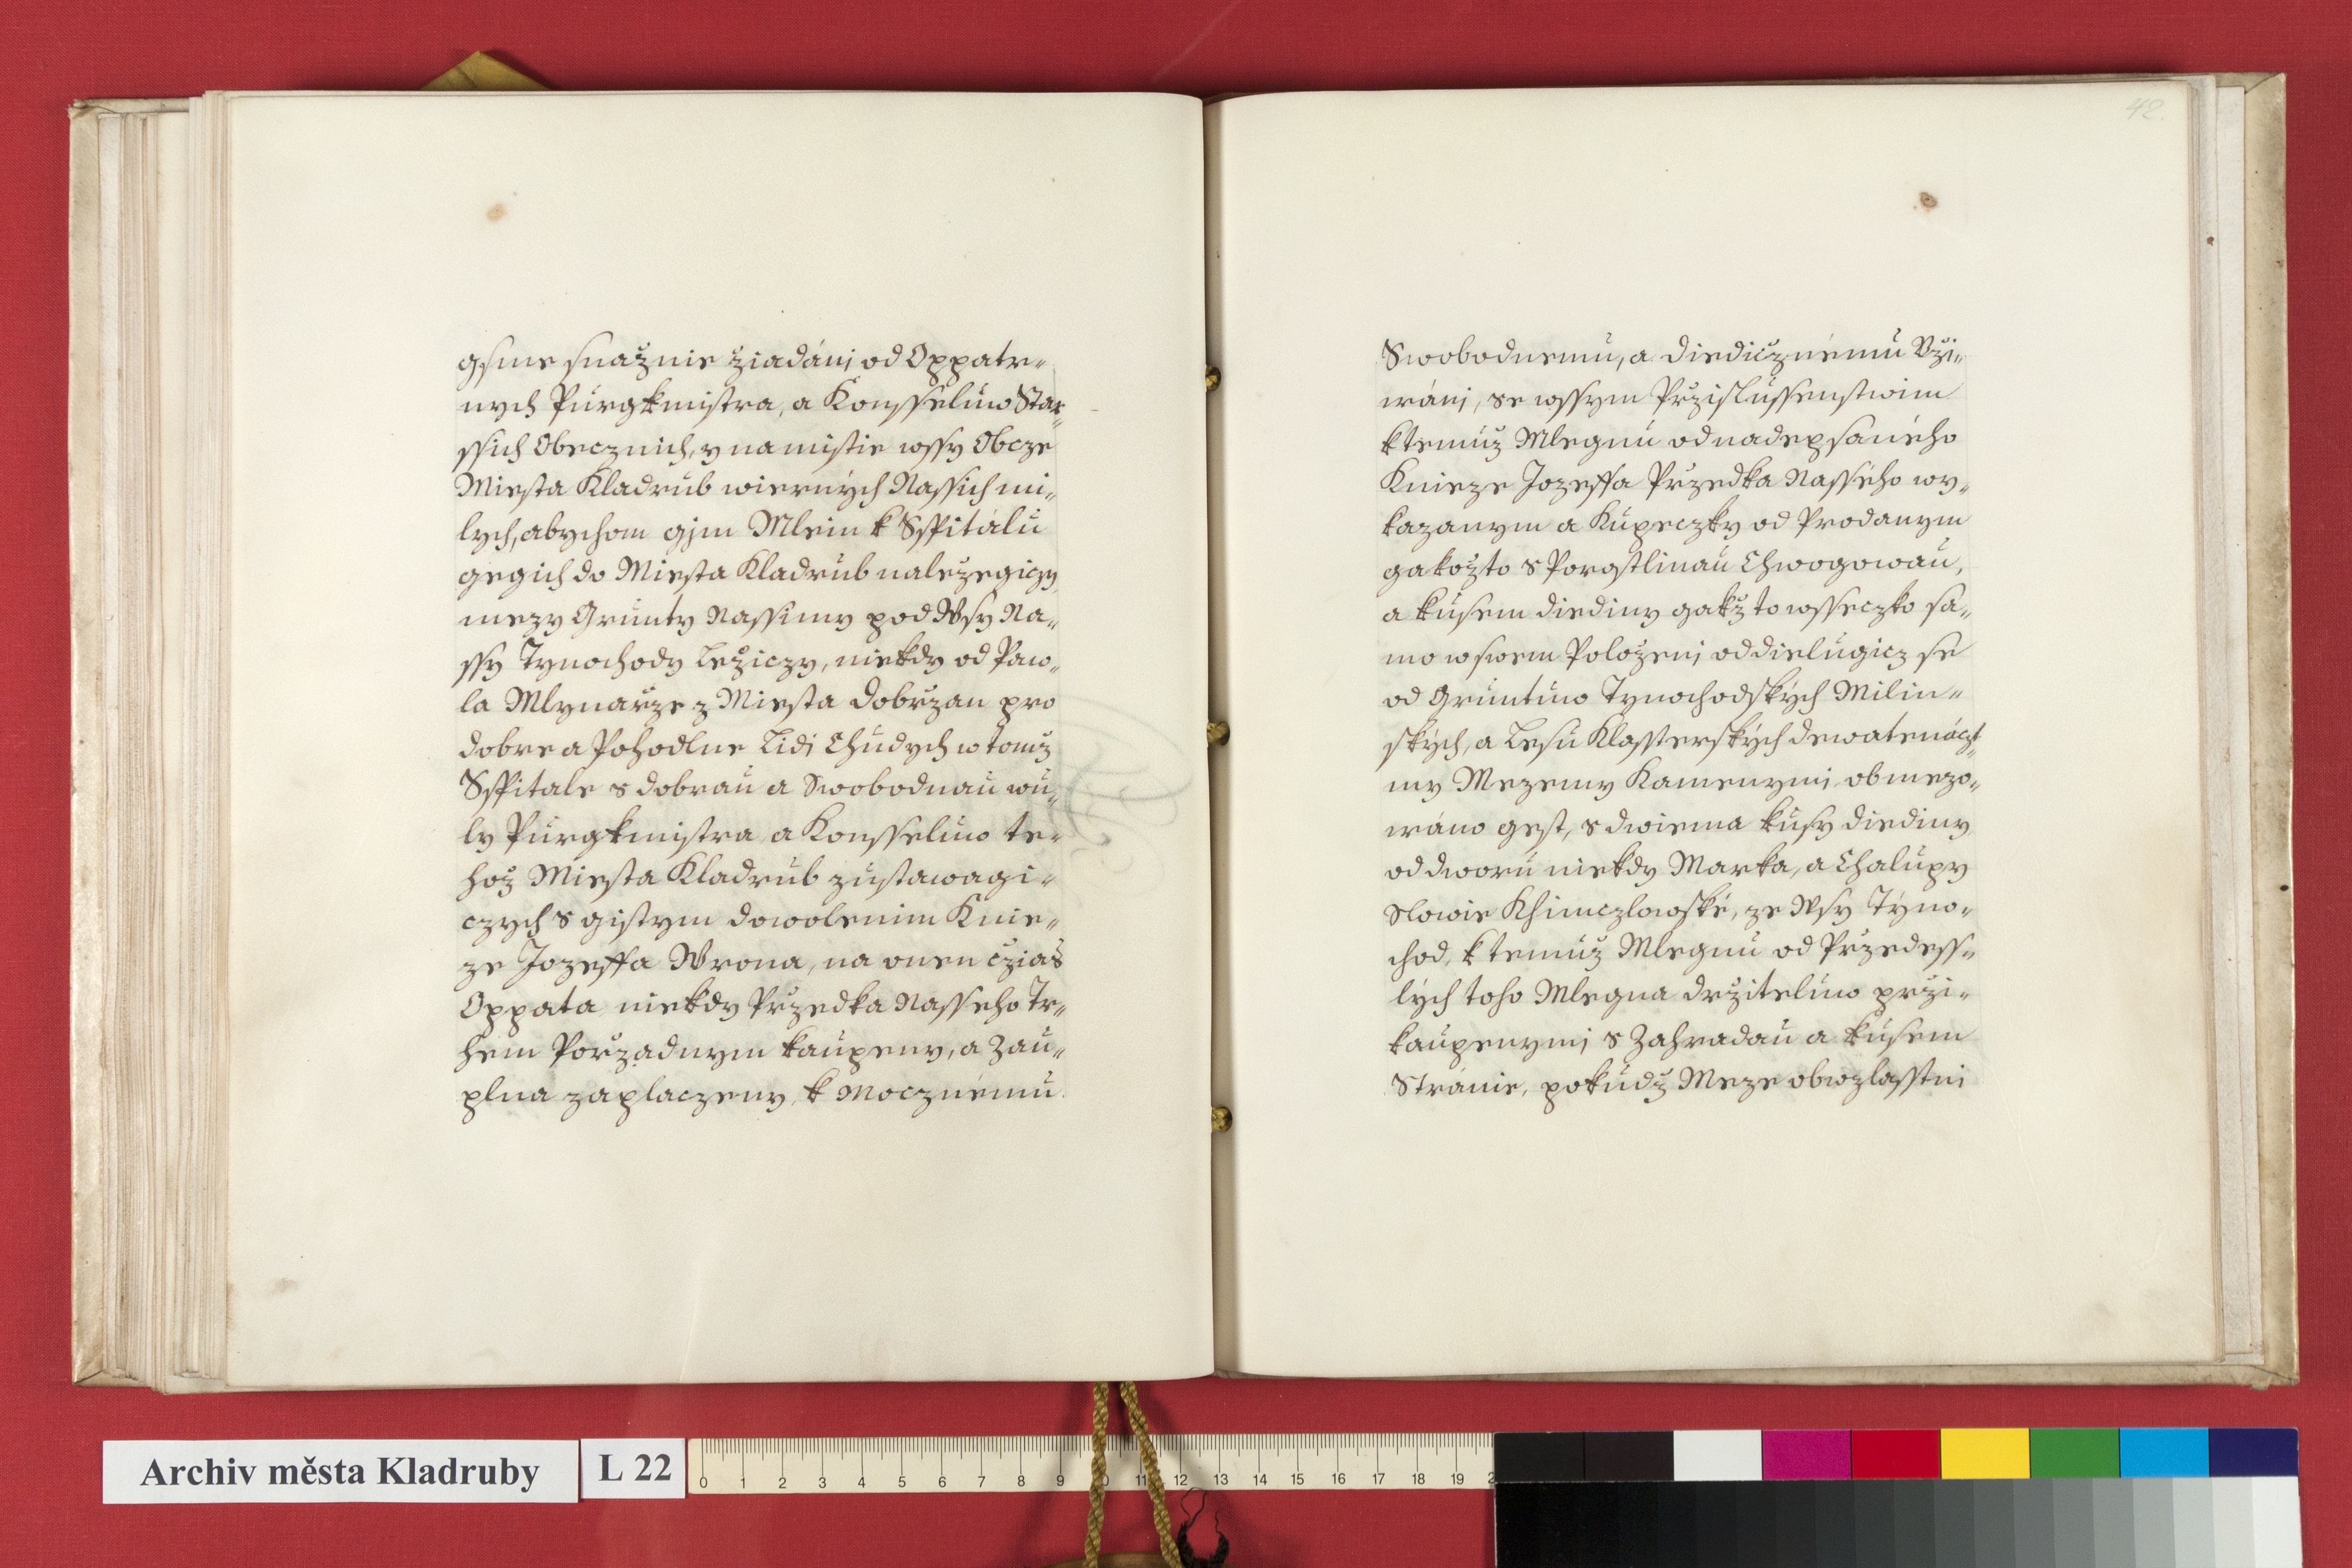 gsme snažnie žiadáni od Oppatr=
nych Purgkmistra, a Konsseluw Star=
ssich Obecznich, y namistie wssy Obcze
Miesta Kladrub wiernych Nassich mi=
lych, abychom gjm Mlein k Sspitalu
gegich do Miesta Kladrub naležegiczy,
mezy Grunty Nassimy pod Wsy Na=
ssy Tynochody Ležiczy, niekdy od Paw=
la Mlynarže z Miesta Dobržan pro
dobre a Pohodlne Lidi Chudych w tomž
Sspitale s dobrau a Swobodnau wu=
ly Purgkmistra a Konsseluw te=
hož Miesta Kladrub zustawagi=
czych s gistym dowolenim Knie=
ze Jozeffa Wrona, na onen cžias
Oppata niekdy Pržedka Nasseho Tr=
hem Poržadnym kaupeny, a Zau=
plna zaplaczeny, k Mocznému
42.
Swobodnemu, a Diedicžnému Vži=
wáni, se wssym Pržislussenstwim
k temuž Mlegnu od nadepsaného
Knieze Jozeffa Pržedka Nasseho wy=
kazanym a Kupeczky od Prodanym
gakožto s Porostlinau Chwogowau,
a kusem diediny gakž to wsseczko sa=
mo w swem Položeni oddielugicz se
od Gruntuw Tynochodských Milin=
ských, a Lesu Klassterských dewatenáczt=
my Mezemy Kamenymi obmezo=
wáno gest, s dwiema kusy diediny
od dworu niekdy Marka, a Chalupy
Slowie Khimczlowské, ze Wsy Týno=
chod, k temuž Mlegnu od Pržedess=
lých toho Mlegna držiteluw prži=
kaupenymi s Zahradau a kusem
Stránie, pokudž Meze obwzlasstni
Archiv města Kladruby
L 22
0 1 2 3 4 5 6 7 8 9 10 11 12 13 14 15 16 17 18 19 2